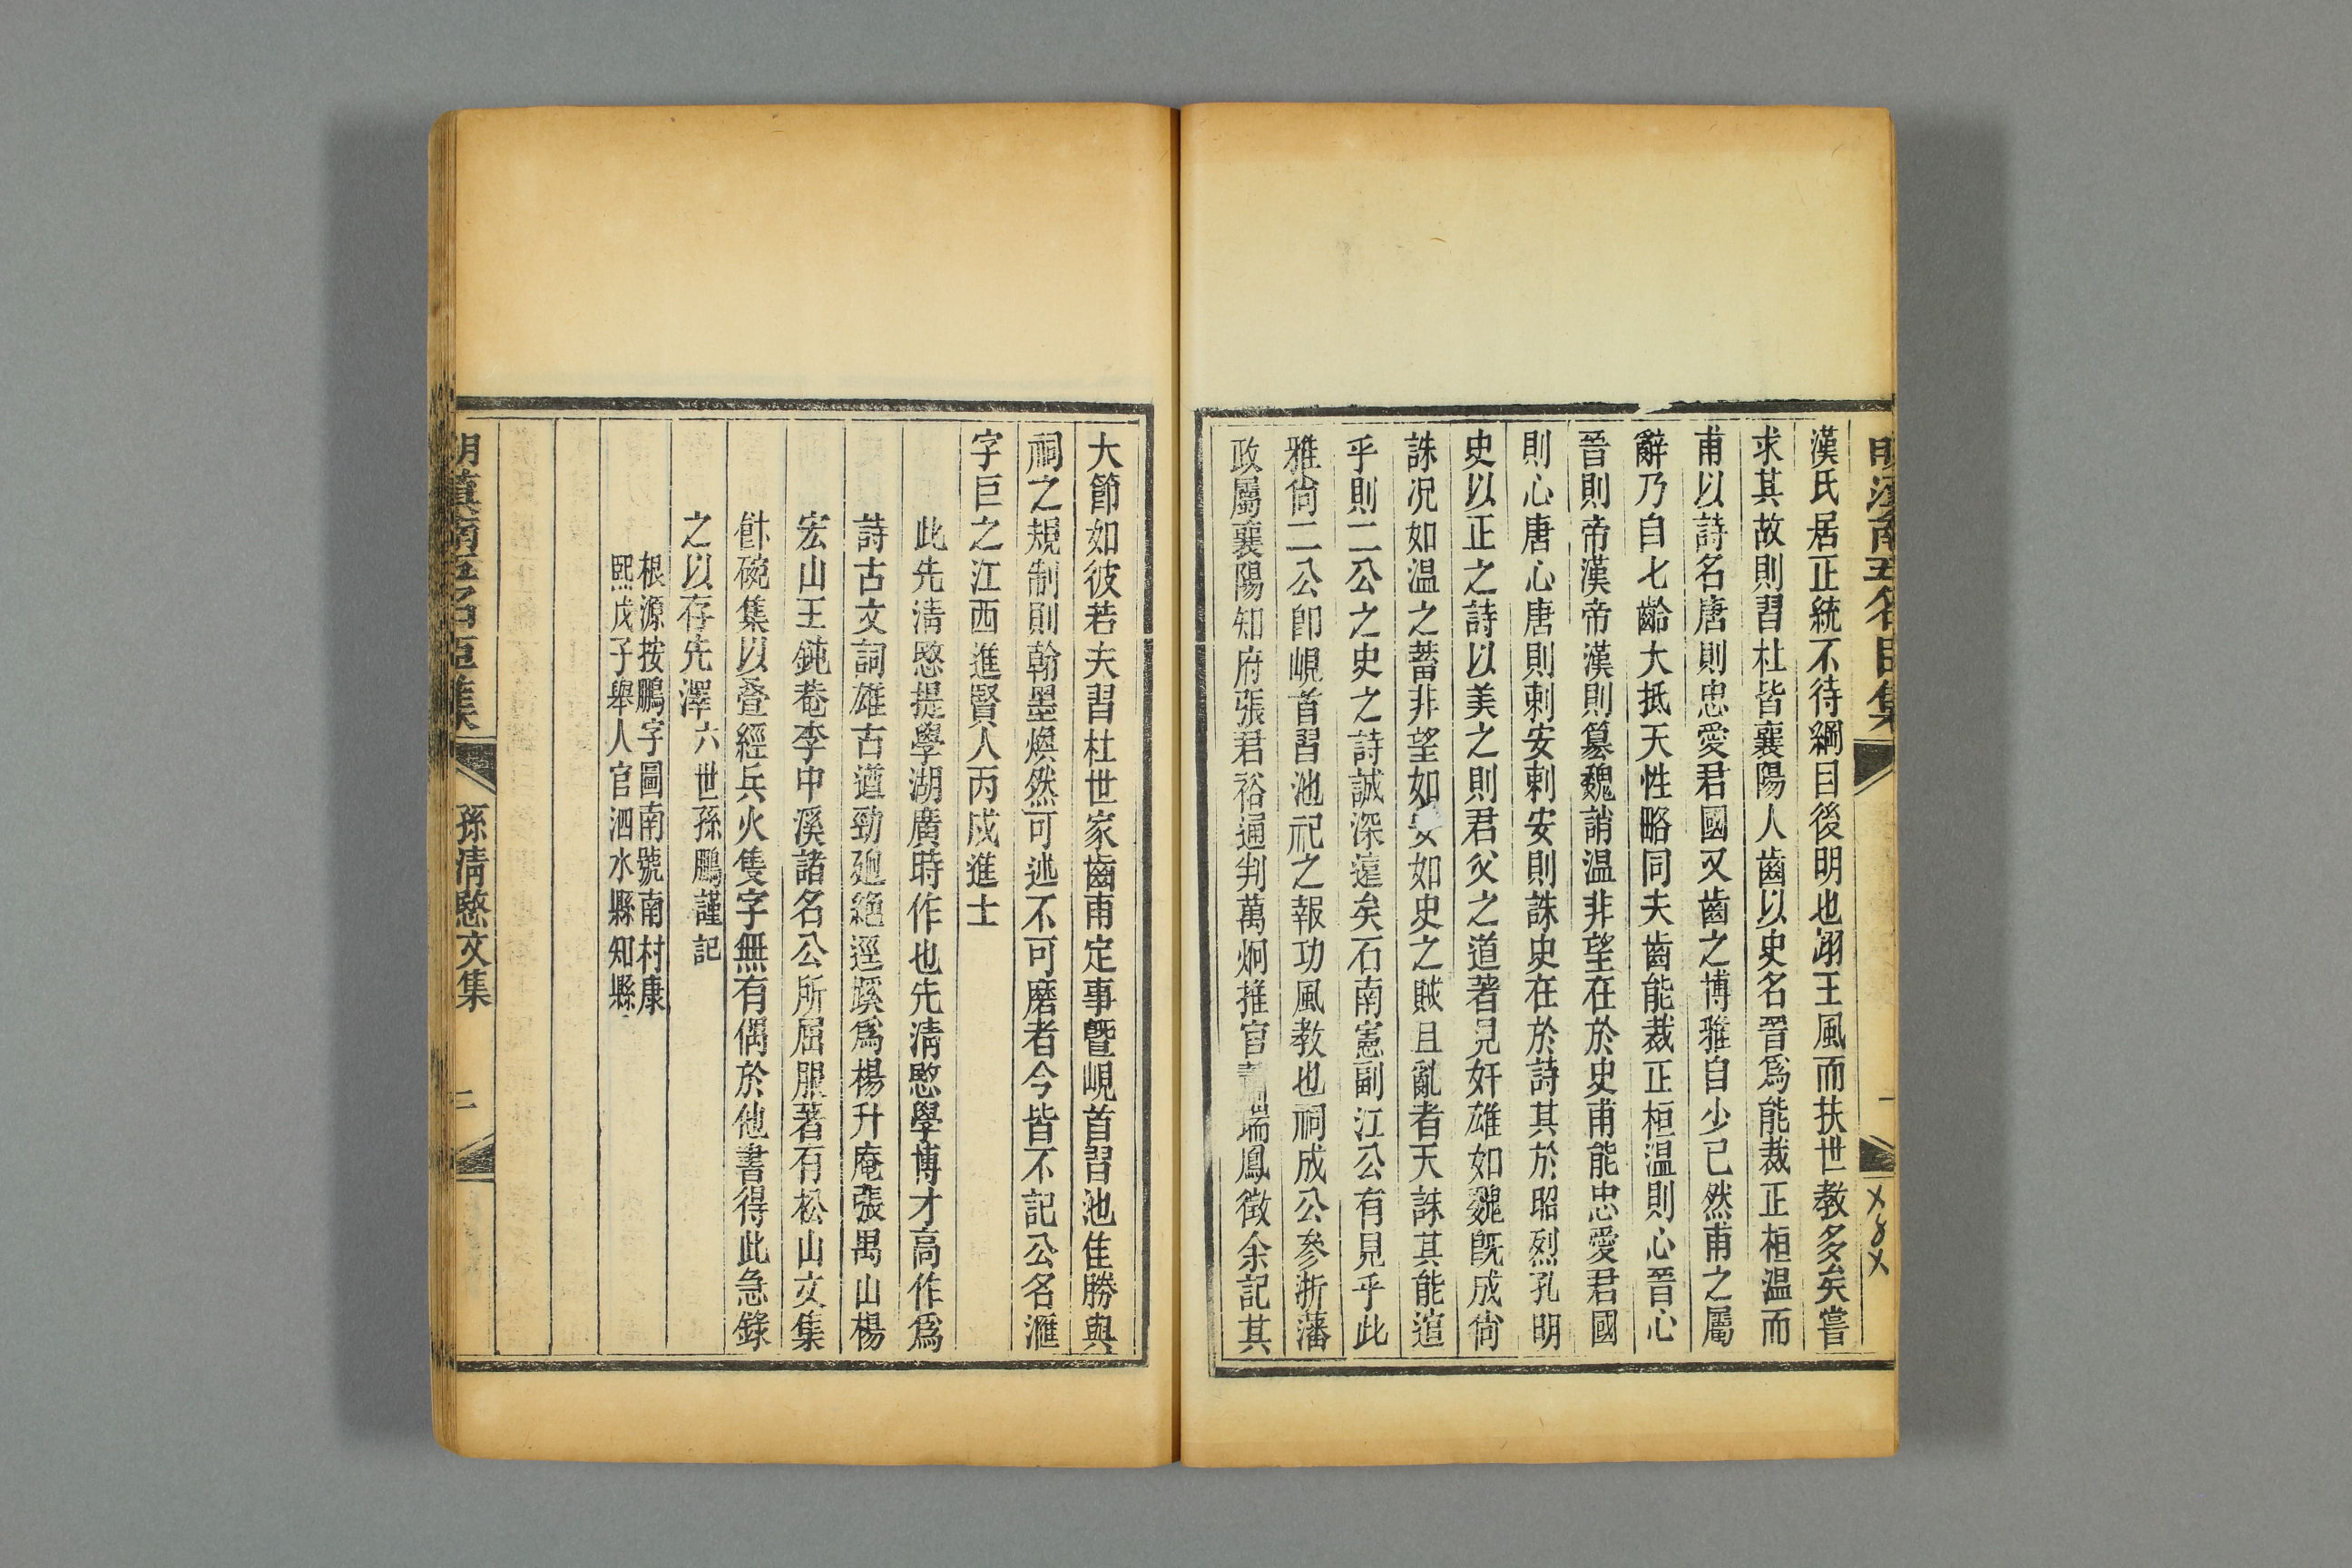 明滇南五名臣集
一
漢氏居正統不待綱目後明也翊王風而扶世教多矣嘗
求其故則習杜皆襄陽人齒以史名晉爲能裁正桓温而
甫以詩名唐則忠愛君國又齒之博雅自少已然甫之屬
辭乃自七齡大抵天性略同夫齒能裁正桓温則心晉心
晉則帝漢帝漢則簒魏誚温非望在於史甫能忠愛君國
則心唐心唐則刺安刺安則誅史在於詩其於昭烈孔明
史以正之詩以美之則君父之道著見奸雄如魏旣成尙
誅况如温之蓄非望如安如史之賊且亂者天誅其能逭
乎則二公之史之詩誠深遠矣石南憲副江公有見乎此
雅尙二公卽峴首習池祀之報功風教也祠成公參浙藩
政屬襄陽知府張君裕通判萬炯推官瑞鳳徵余記其
大節如彼若夫習杜世家齒甫定事曁峴首習池佳勝與
祠之規制則翰墨煥然可述不可磨者今皆不記公名滙
字巨之江西進賢人丙戌進士
此先淸愍提學湖廣時作也先淸愍學博才高作爲
詩古文詞雄古遒勁廻絶逕蹊爲楊升庵張禺山楊
宏山王鈍菴李中溪諸名公所屈服著有松山文集
飣碗集以叠經兵火隻字無有偶於他書得此急錄
之以存先澤六世孫鵬謹記
根源按鵬字圖南號南村康
熙戊子舉人官泗水縣知縣
明滇南五名臣集
孫淸愍文集
二